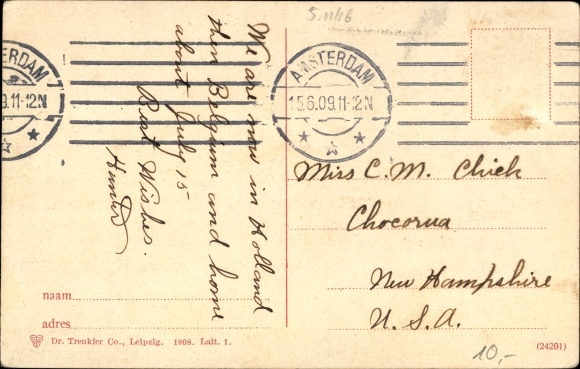 5.11/16
AMSTERDAM
9.11-12N
AMSTERDAM
15.6.09.11-12N
We are now in Holland
then Belgium and home
about July 15
Best Wishes.
Hunter
Miss C. M. Chick
Chocorua
New Hampshire
U. S. A.
naam
adres
Dr. Trenkler Co., Leipzig. 1908. Lait. 1.
(24201)
10,-